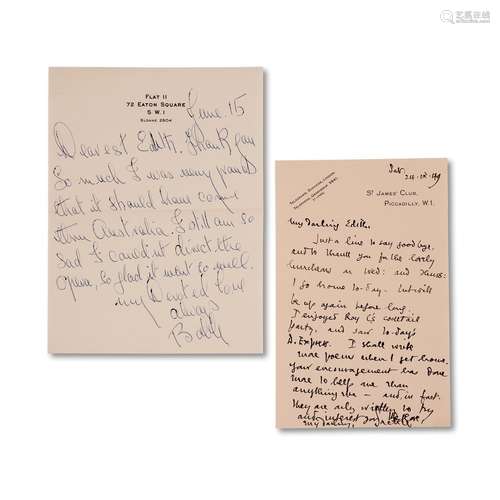 艺典中国
yidianchina.com
FLAT 11
72 EATON SQUARE
S W 1
SLOANE
June 15
Dearest Edith, Thank you
so much I was very proud
that it should have come
from Australia. I still am so
sad I couldn't direct the
opera, so glad it went so well.
my Devoted love
always
Bobby
Sat.
ST JAMES' CLUB,
PICCADILLY, W.1.
My Darling Edith,
Just a line to say good-bye,
and to thank you for the lovely
luncheons on Wed: and Thurs:
I go home to-day. But will
be up again before long.
I enjoyed Roy C's cocktail
party, and saw to-day's
D. Express. I shall write
more poems when I get home.
your encouragement has done
more to help me than
anything else — and, in fact,
they are only written to try
and interest you
my darling,